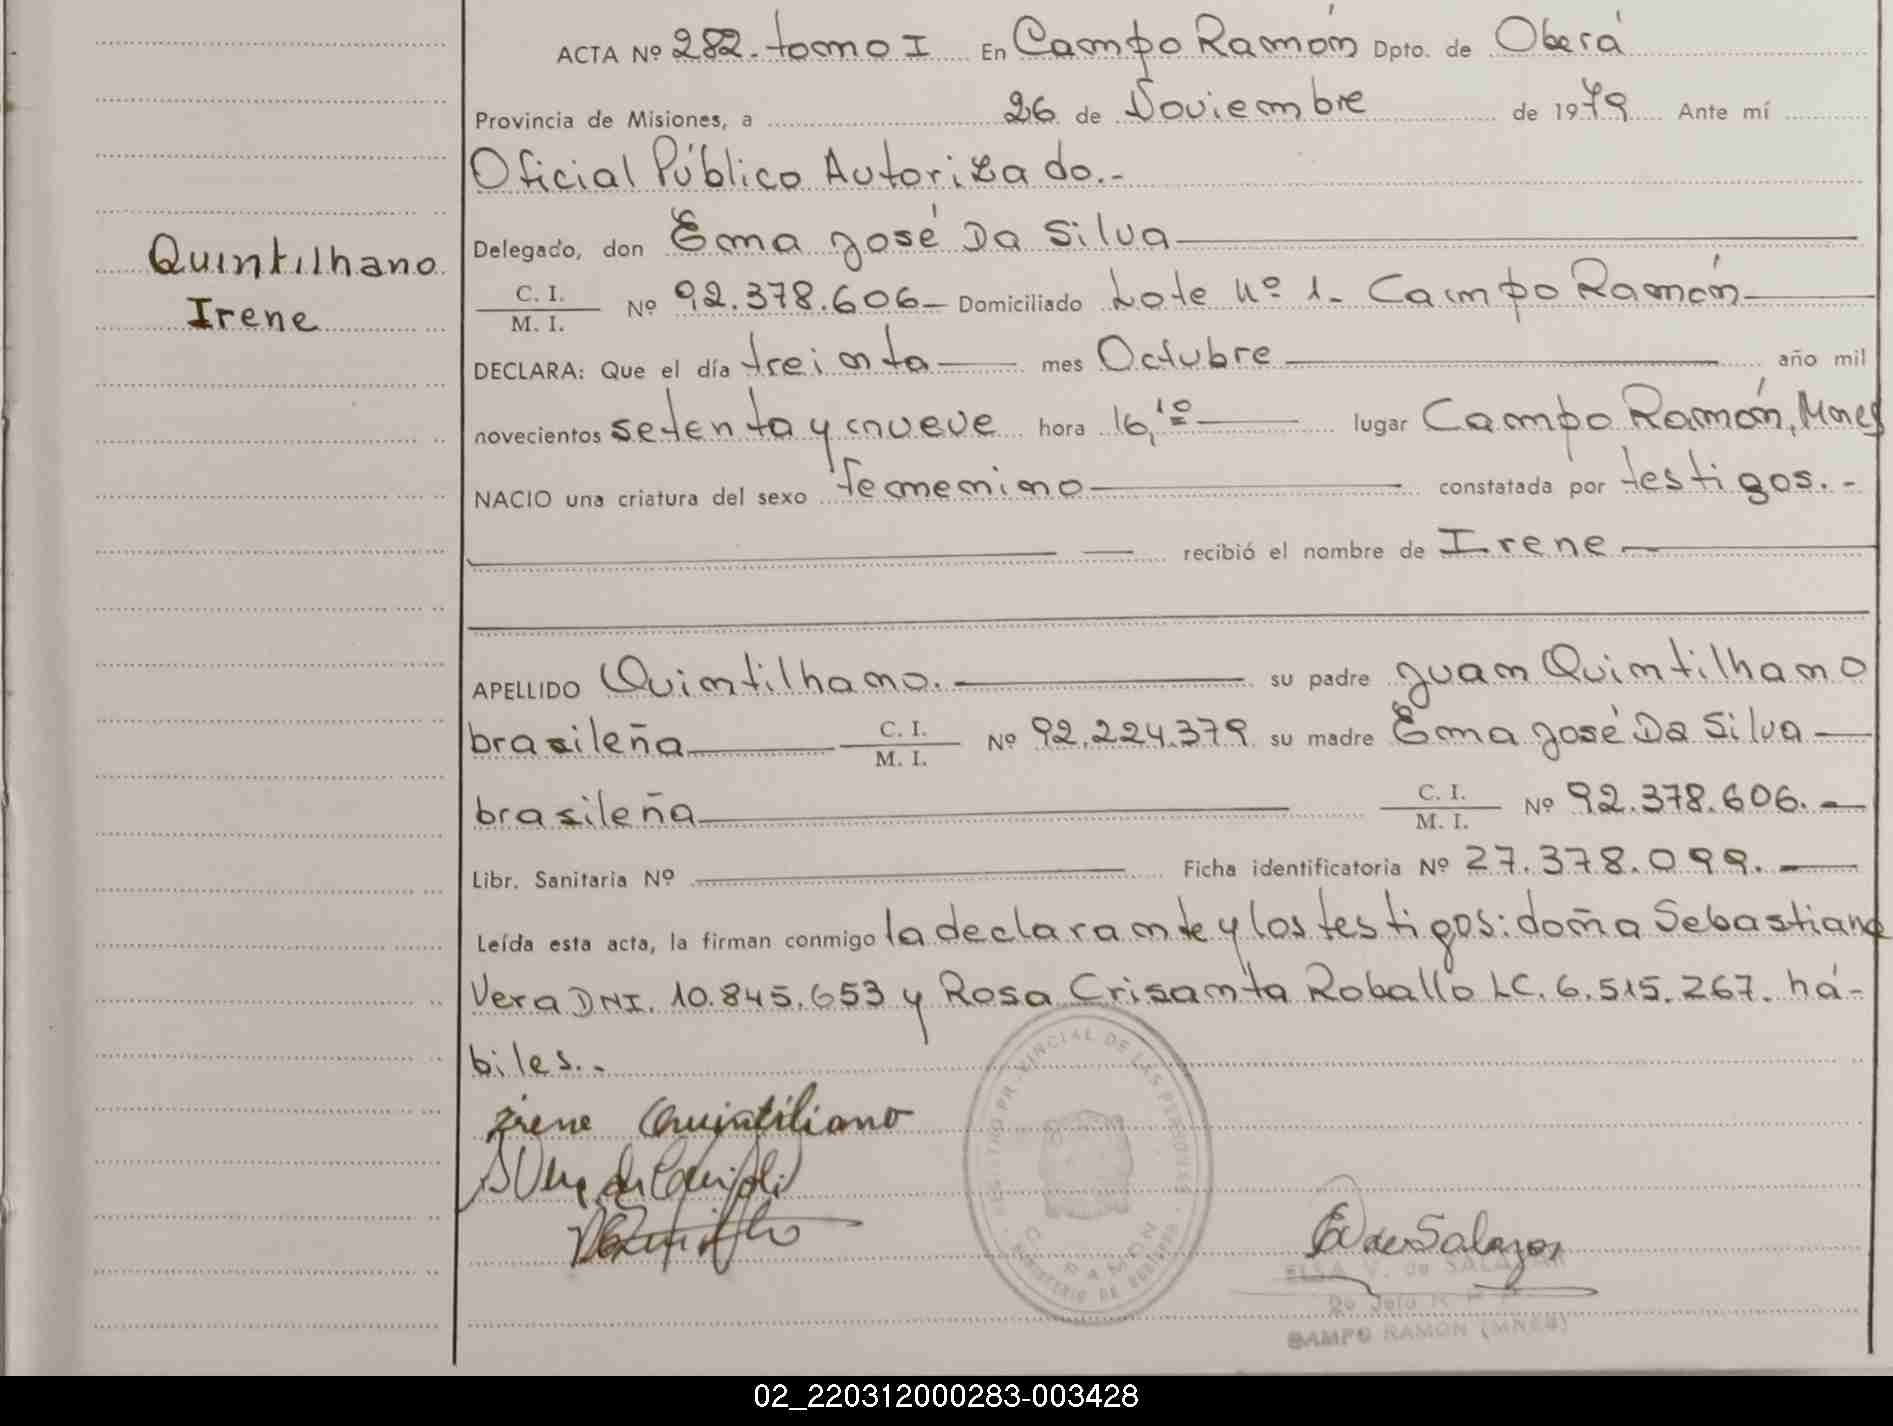 ACTA Nº 282. tomo I En Campo Ramón Dpto. de Oberá
Provincia de Misiones, a 26 de Noviembre de 1979 Ante mí
Oficial Público Autorizado.-
Quintilhano
Irene
Delegado, don Ema José Da Silva
C. I.
M. I. Nº 92.378.606 Domiciliado Lote nº 1- Campo Ramón
DECLARA: Que el día treinta mes Octubre año mil
novecientos setenta y nueve hora 16,10 lugar Campo Ramón, Mnes
NACIO una criatura del sexo femenino constatada por testigos.-
recibió el nombre de Irene
APELLIDO Quintilhano. su padre Juan Quintilhano
brasileña C. I. M. I. Nº 92.224.379 su madre Ema José Da Silva
brasileña C. I. M. I. Nº 92.378.606.
Libr. Sanitaria Nº Ficha identificatoria Nº 27.378.099.
Leída esta acta, la firman conmigo la declarante y los testigos: doña Sebastiana
Vera DNI. 10.845.653 y Rosa Crisanta Roballo LC. 6.515.267. há-
biles.-
Irene Quintiliano
E V de Salazar
ELSA V. de SALAZAR
CAMPO RAMON (MNES)
02_220312000283-003428